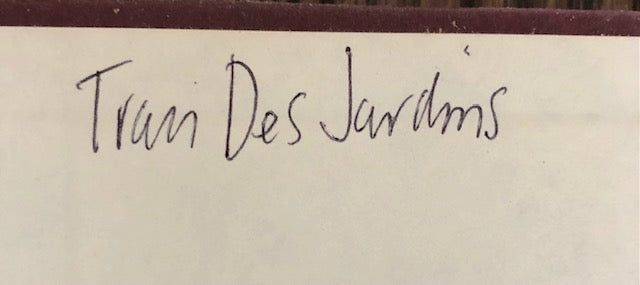 Tran Des Jardins